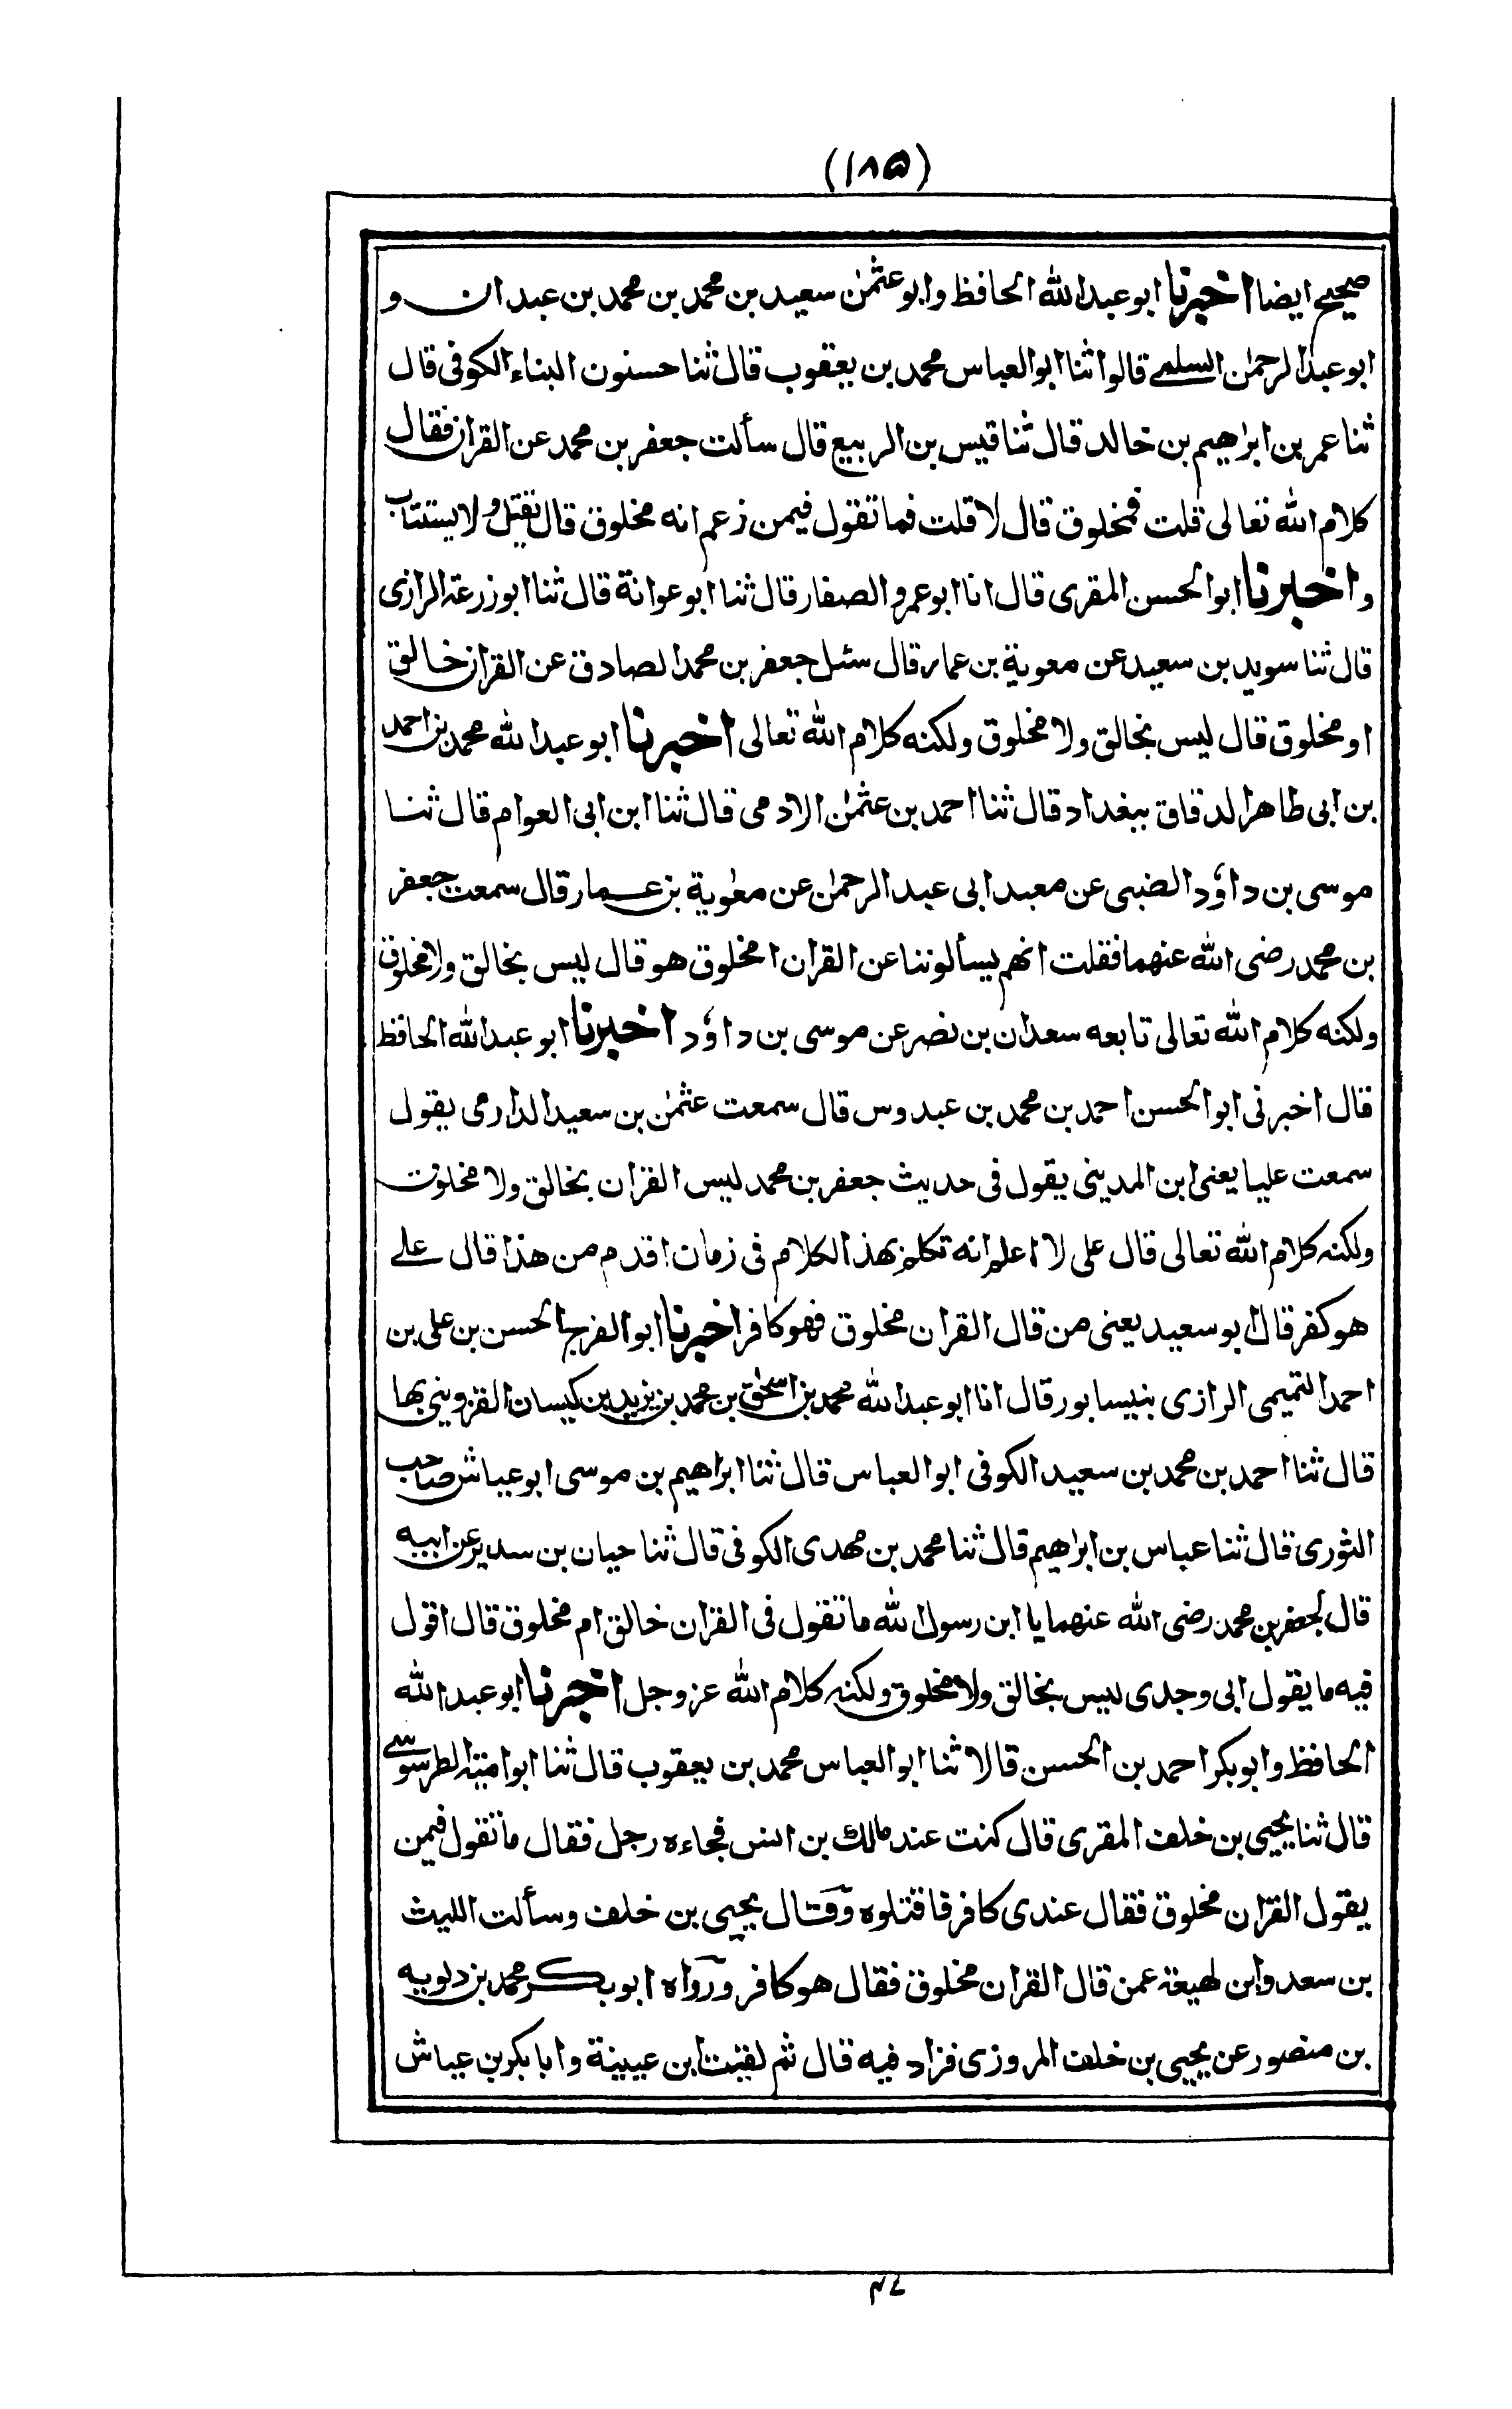 (١٨٥)
صحيح ايضا اخبرنا ابو عبد الله الحافظ وابو عثمٰن سعيد بن محمد بن محمد بن عبدان و
ابو عبد الرحمٰن السلمے قالوا ثنا ابو العباس محمد بن يعقوب قال ثنا حسنون البناء الكوفى قال
ثنا عمر بن ابراهيم بن خالد قال ثنا قيس بن الربيع قال سألت جعفر بن محمد عن القران فقال
كلام الله تعالى قلت فمخلوق قال لا قلت فما تقول فيمن زعم انه مخلوق قال يقتل ولا يستتاب
واخبرنا ابو الحسن المقرى قال انا ابو عمرو الصفار قال ثنا ابو عوانة قال ثنا ابو زرعة الرازى
قال ثنا سويد بن سعيد عن معوية بن عمار قال سئل جعفر بن محمد الصادق عن القران خالق
او مخلوق قال ليس بخالق ولا مخلوق ولكنه كلام الله تعالى اخبرنا ابو عبد الله محمد بن احمد
بن ابى طاهر الدقاق ببغداد قال ثنا احمد بن عثمٰن الادمى قال ثنا ابن ابى العوام قال ثنا
موسى بن داوٗد الضبى عن معبد ابى عبد الرحمٰن عن معٰوية بن عمار قال سمعت جعفر
بن محمد رضى الله عنهما فقلت انهم يسألوننا عن القران امخلوق هو قال ليس بخالق ولا مخلوق
ولكنه كلام الله تعالى تابعه سعدان بن نصر عن موسى بن داوٗد اخبرنا ابو عبد الله الحافظ
قال اخبرنى ابو الحسن احمد بن محمد بن عبدوس قال سمعت عثمٰن بن سعيد الدارمى يقول
سمعت عليا يعنى ابن المدينى يقول فى حديث جعفر بن محمد ليس القران بخالق ولا مخلوق
ولكنه كلام الله تعالى قال على لا اعلم انه تكلم بهذا الكلام فى زمان اقدم من هذا قال علے
هو كفر قال ابو سعيد يعنى من قال القران مخلوق فهو كافر اخبرنا ابو الفرج الحسن بن على بن
احمد التميمى الرازى بنيسابور قال انا ابو عبد الله محمد بن اسحٰق بن محمد بن يزيد بن كيسان القزوينى بها
قال ثنا احمد بن محمد بن سعيد الكوفى ابو العباس قال ثنا ابراهيم بن موسى ابو عياش صاحب
الثورى قال ثنا عباس بن ابراهيم قال ثنا محمد بن مهدى الكوفى قال ثنا حيان بن سدير عن ابيه
قال لجعفر بن محمد رضى الله عنهما يا ابن رسول الله ما تقول فى القران خالق ام مخلوق قال اقول
فيه ما يقول ابى وجدى ليس بخالق ولا مخلوق ولكنه كلام الله عز وجل اخبرنا ابو عبد الله
الحافظ وابو بكر احمد بن الحسن قالا ثنا ابو العباس محمد بن يعقوب قال ثنا ابو امية الطرسوسے
قال ثنا يحيى بن خلف المقرى قال كنت عند مالك بن انس فجاءه رجل فقال ما تقول فيمن
يقول القران مخلوق فقال عندى كافر فاقتلوه وقال يحيى بن خلف وسألت الليث
بن سعد وابن لهيعة عمن قال القران مخلوق فقال هو كافر ورواه ابو بكر محمد بن دلويه
بن منصور عن يحيى بن خلف المروزى فزاد فيه قال ثم لقيت ابن عيينة وابا بكر بن عياش